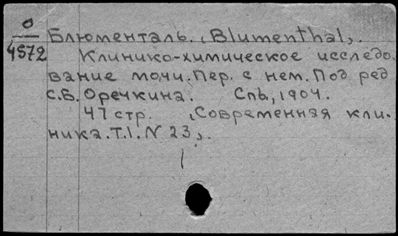 О
4572
Блюменталь. (Blumenthal).
Клинико-химическое исследо-
вание мочи. Пер. с нем. Под ред
С.Б. Оречкина. Спб, 1904.
47 стр. (Современная кли-
ника. Т.I. N 23).